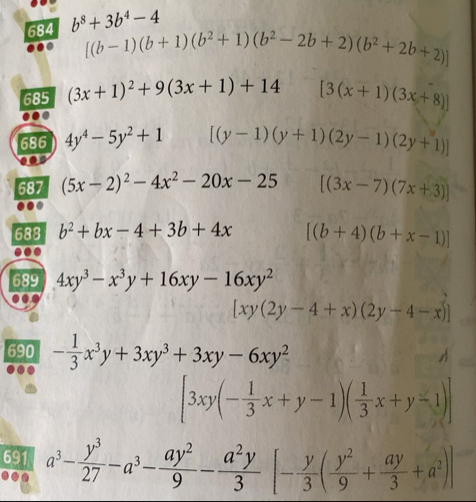 684 b⁸ + 3b⁴ − 4
[(b − 1)(b + 1)(b² + 1)(b² − 2b + 2)(b² + 2b + 2)]
685 (3x + 1)² + 9(3x + 1) + 14 [3(x + 1)(3x + 8)]
686 4y⁴ − 5y² + 1 [(y − 1)(y + 1)(2y − 1)(2y + 1)]
687 (5x − 2)² − 4x² − 20x − 25 [(3x − 7)(7x + 3)]
688 b² + bx − 4 + 3b + 4x [(b + 4)(b + x − 1)]
689 4xy³ − x³y + 16xy − 16xy²
[xy(2y − 4 + x)(2y − 4 − x)]
690 −1/3x³y + 3xy³ + 3xy − 6xy²
[3xy(−1/3x + y − 1)(1/3x + y − 1)]
691 a³ − y³/27 − a³ − ay²/9 − a²y/3 [−y/3(y²/9 + ay/3 + a²)]